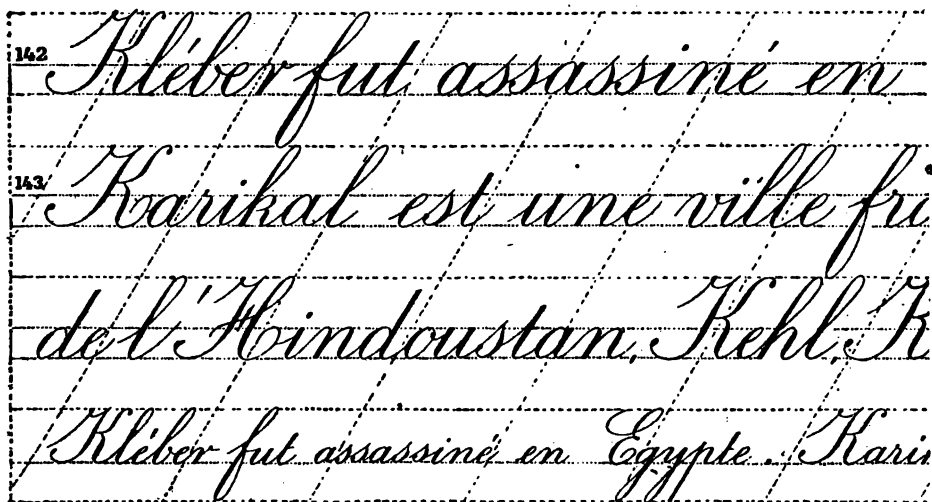 142 Kléber fut assassiné en
143 Karikal est une ville
de l'Hindoustan. Kehl.
Kléber fut assassiné en Egypte.